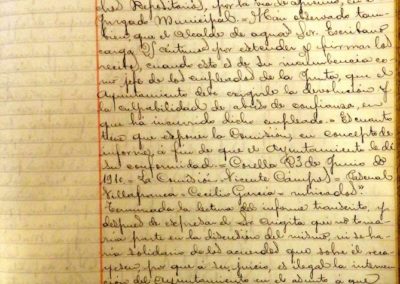 los Repositarios, por la vía de apremio, en el
Juzgado Municipal. = Han observado tam
bien, que el Alcalde de aguas Sor. Escribano
carga 75 céntimos por estender y firmar los
recibos, cuando esto es de su incumbencia co
mo jefe de los empleados de la Junta, que el
Ayuntamiento debe exigirle la devolución y
la culpabilidad de abuso de confianza, en
que ha incurrido dicho empleado. = Es cuanto
tiene que esponer la Comisión, en concepto de
informe, á fin de que el Ayuntamiento le dé
su conformidad = Corella 23 de Junio de
1910. = La Comisión = Vicente = Pascual
Villafranca = Cecilio Garcia = rubricados."
Terminada la lectura del informe transcrito, y
después de expresar el Sr. que no toma
ria parte en la discusión del mismo, ni se ha
ría solidario de los acuerdos que sobre él reca
yesen, por que á su juicio, es ilegal la interven
ción del Ayuntamiento en el asunto á que